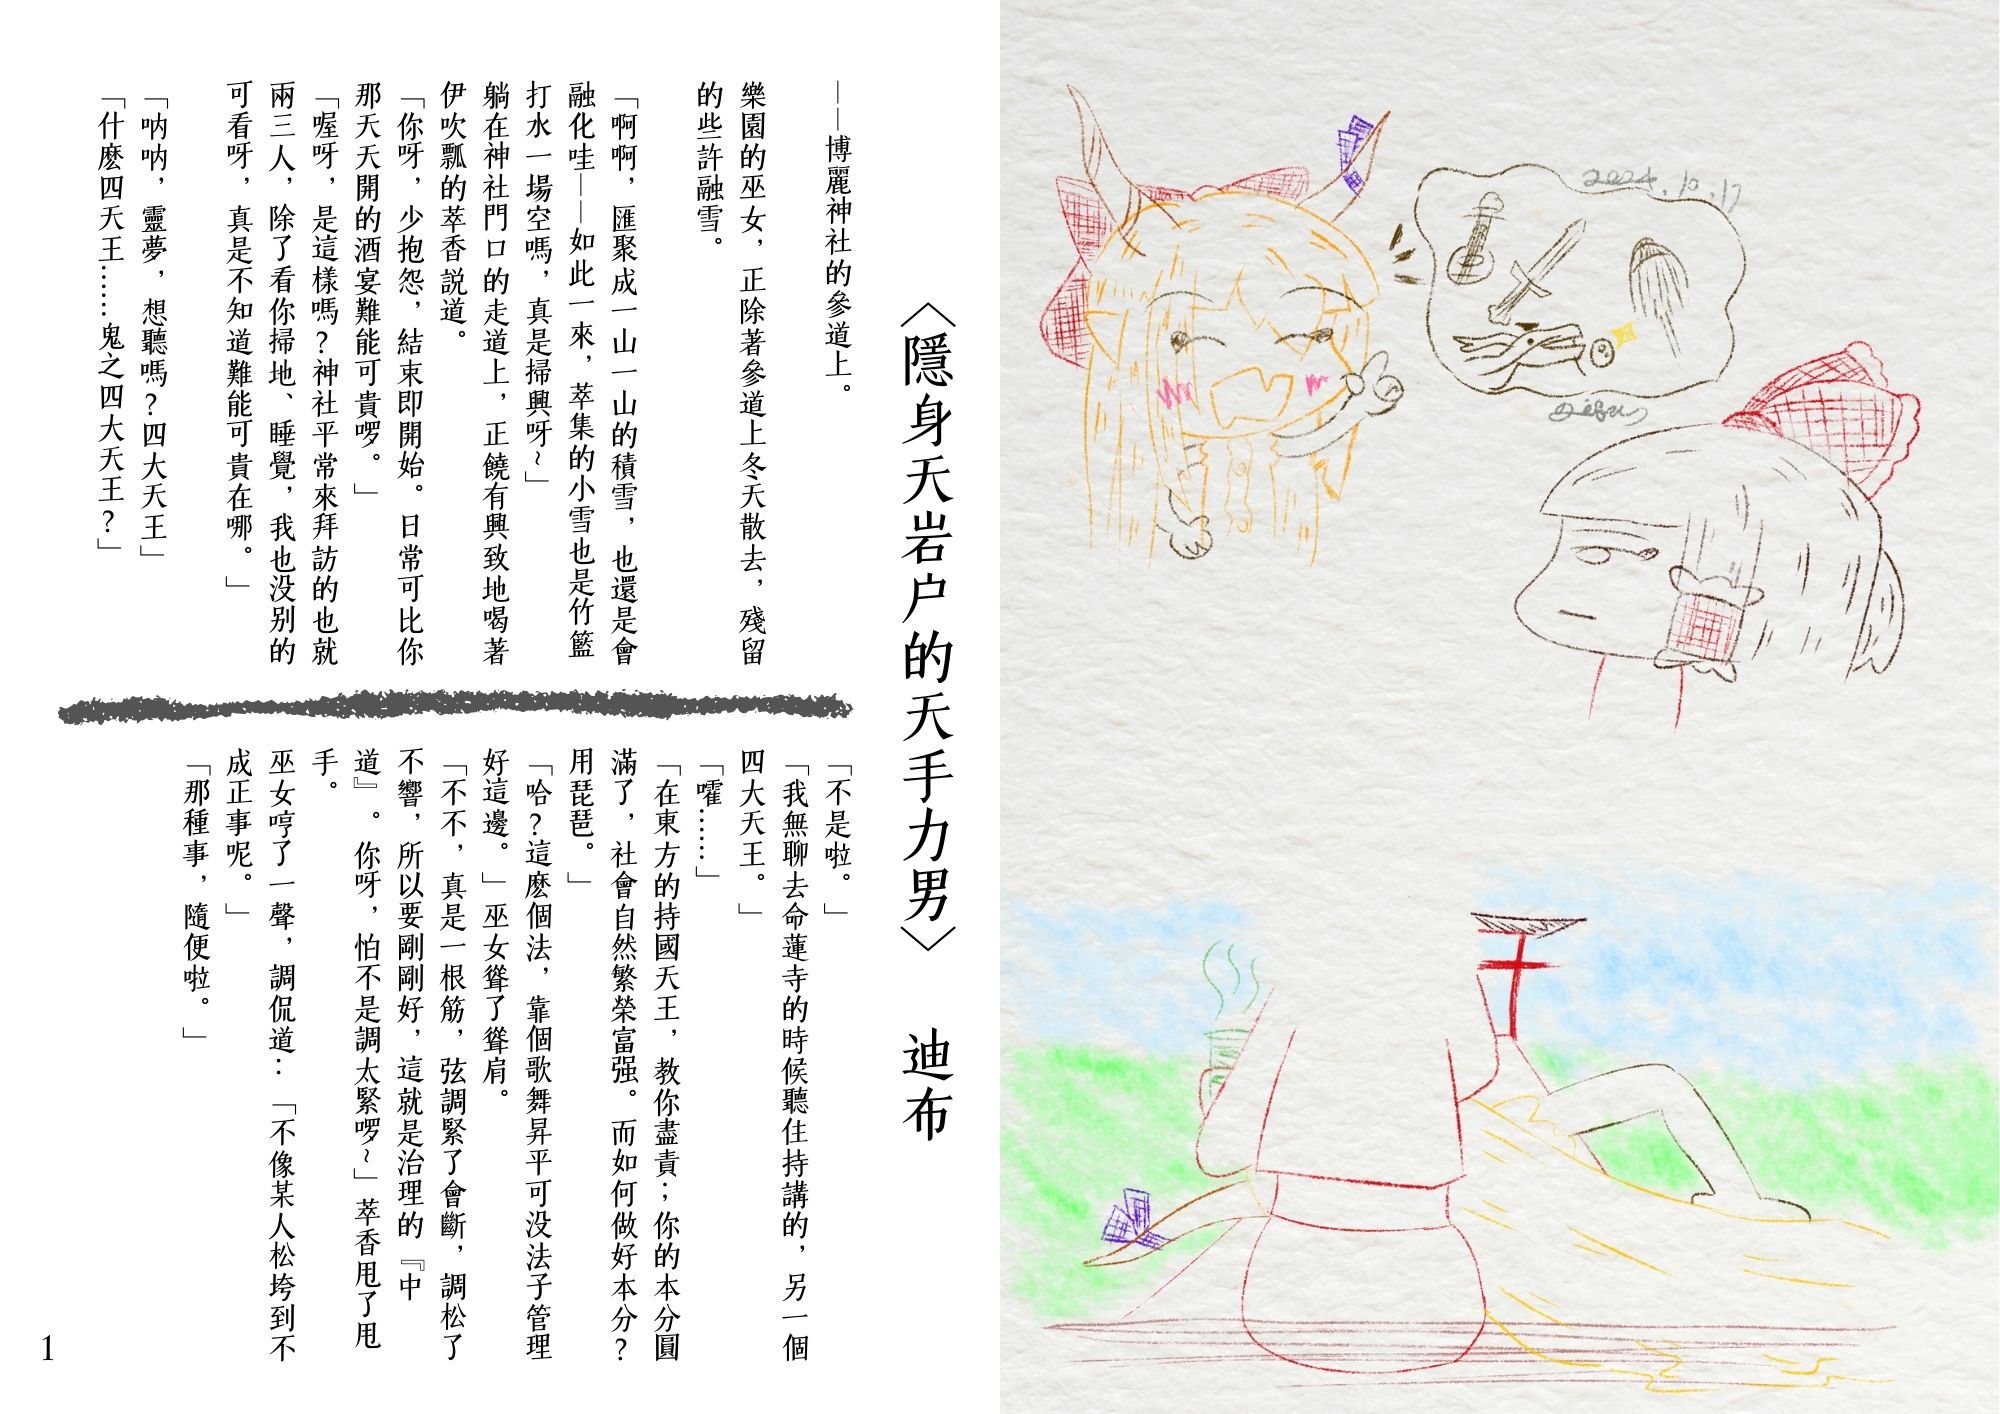 2024.10.17
〈隱身天岩户的天手力男〉　迪布
——博麗神社的參道上。
樂園的巫女，正除著參道上冬天散去，殘留
的些許融雪。
「啊啊，匯聚成一山一山的積雪，也還是會
融化哇——如此一來，萃集的小雪也是竹籃
打水一場空嗎，真是掃興呀~」
躺在神社門口的走道上，正饒有興致地喝著
伊吹瓢的萃香説道。
「你呀，少抱怨，結束即開始。日常可比你
那天天開的酒宴難能可貴啰。」
「喔呀，是這樣嗎？神社平常來拜訪的也就
兩三人，除了看你掃地、睡覺，我也没别的
可看呀，真是不知道難能可貴在哪。」
「呐呐，靈夢，想聽嗎？四大天王」
「什麽四天王……鬼之四大天王？」
「不是啦。」
「我無聊去命蓮寺的時候聽住持講的，另一個
四大天王。」
「嚯……」
「在東方的持國天王，教你盡責；你的本分圓
滿了，社會自然繁榮富强。而如何做好本分？
用琵琶。」
「哈？這麽個法，靠個歌舞昇平可没法子管理
好這邊。」巫女聳了聳肩。
「不不，真是一根筋，弦調緊了會斷，調松了
不響，所以要剛剛好，這就是治理的『中
道』。你呀，怕不是調太緊啰~」萃香甩了甩
手。
巫女哼了一聲，調侃道：「不像某人松垮到不
成正事呢。」
「那種事，隨便啦。」
1